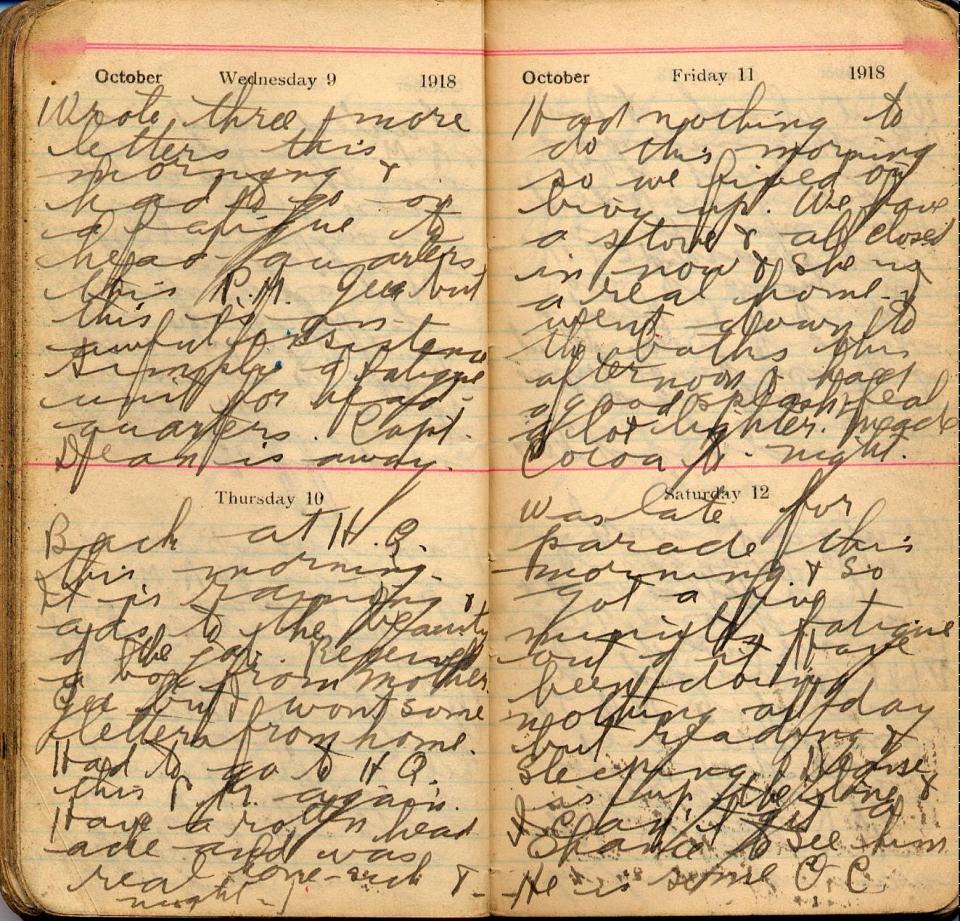 October Wednesday 9 1918
Wrote three & more
letters this
morning &
had to go on
a fatigue to
head-quarters
this P.M. Gee but
this is an
awful
simply a fatigue
unit for head-
quarters. Capt.
Dean is away.
Thursday 10
Back at H.Q.
this morning.
It is raining &
ads to the beauty
of the job. Received
a box from mother
Gee but I want some
letters from home.
Had to go to H Q.
this P.M. again.
Have a rotten head
ache and was
real sick to-
night -
October Friday 11 1918
Had nothing to
do this morning
so we fixed our
bivy up. We have
a stove & all closed
in now & she is
a real home. I
went down to
the baths this
afternoon & had
a good splash, feel
a lot lighter. Made
Cocoa to-night.
Saturday 12
Was late for
parade this
morning & so
got a five
minute fatigue
out of it. Have
been doing
nothing all day
but reading &
sleeping.
is up the line &
I can't get a
Chance to see him
He is some O.C.